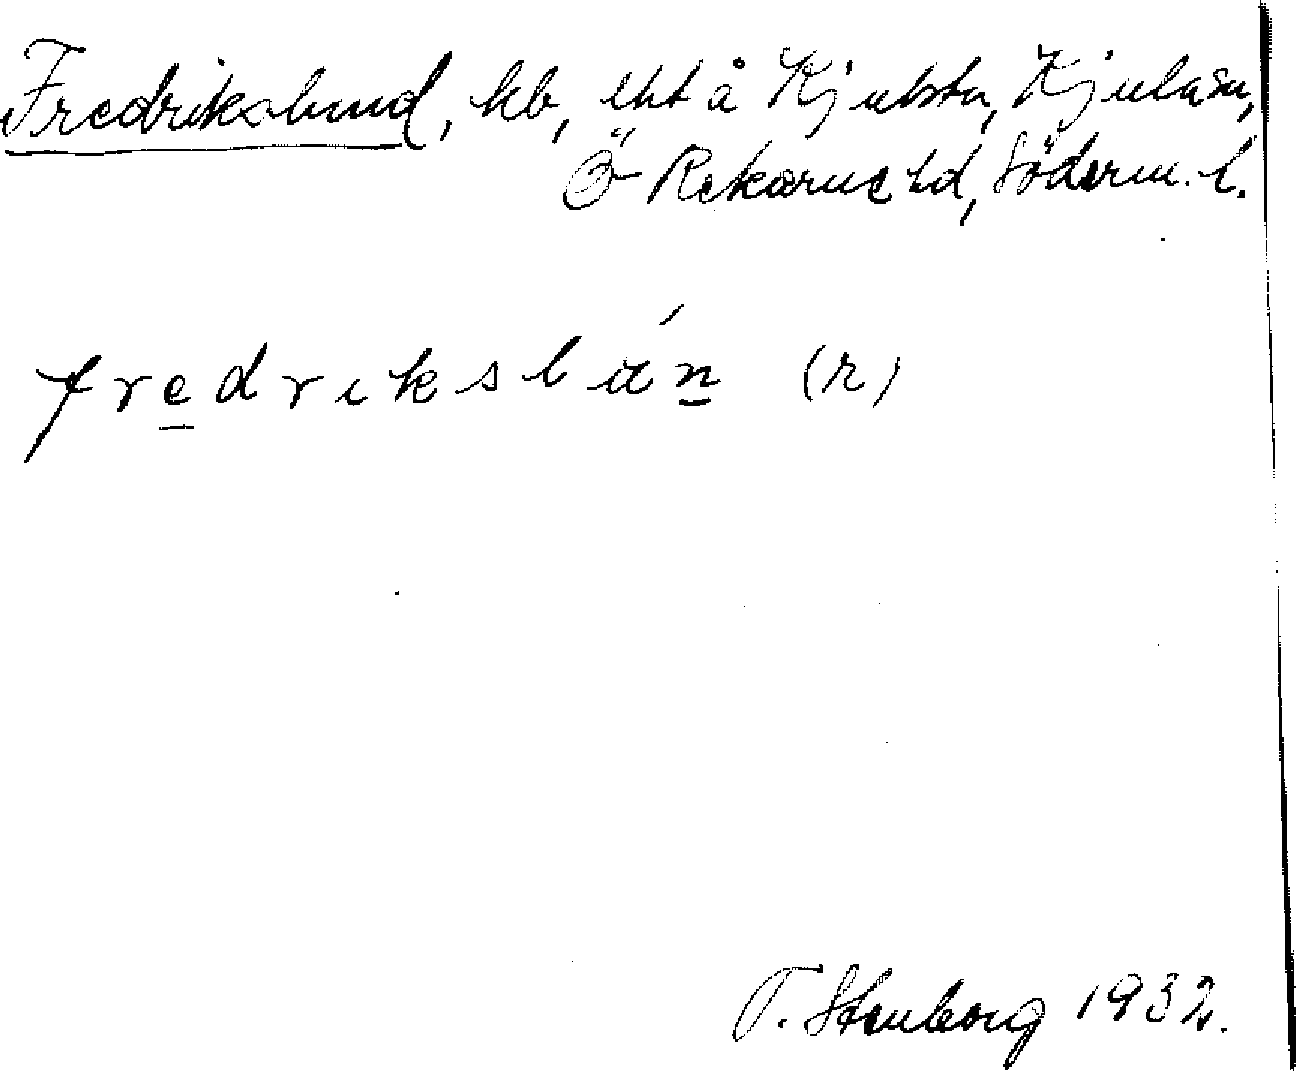 Fredrikslund, lhb, lht å Kjulsta, Kjula sn,
Ö Rekarne hd, Söderm. l.
fredrikslán (r)
T. Stenborg 1932.